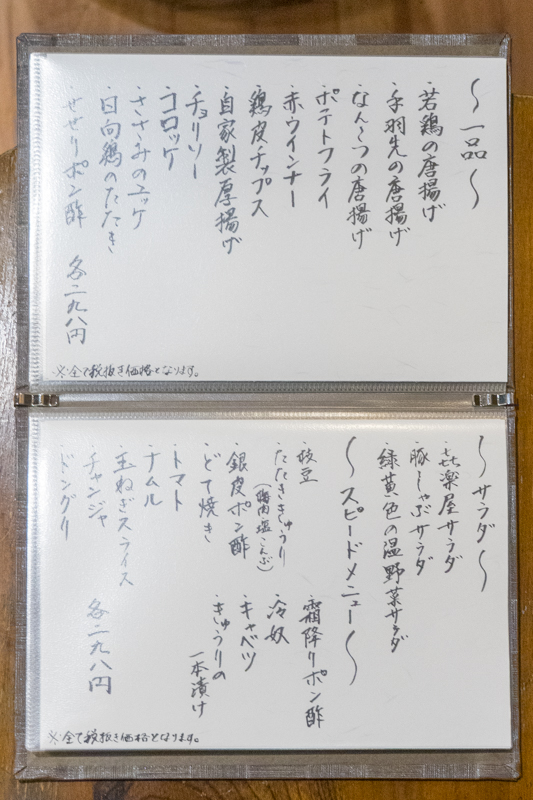 ～一品～
・若鶏の唐揚げ
・手羽先の唐揚げ
・なんこつの唐揚げ
・ポテトフライ
・赤ウインナー
・鶏皮チップス
・自家製厚揚げ
・チョリソー
・コロッケ
・ささみのユッケ
・日向鶏のたたき
・せせりポン酢
各二九八円
※全て税抜き価格となります。
～サラダ～
・喜楽屋サラダ
・豚しゃぶサラダ
・緑黄色の温野菜サラダ
～スピードメニュー～
・枝豆
・たたききゅうり
（梅肉塩こんぶ）
・銀皮ポン酢
・どて焼き
・トマト
・ナムル
・玉ねぎスライス
・チャンジャ
・ドングリ
・霜降りポン酢
・冷奴
・キャベツ
・きゅうりの
一本漬け
各二九八円
※全て税抜き価格となります。